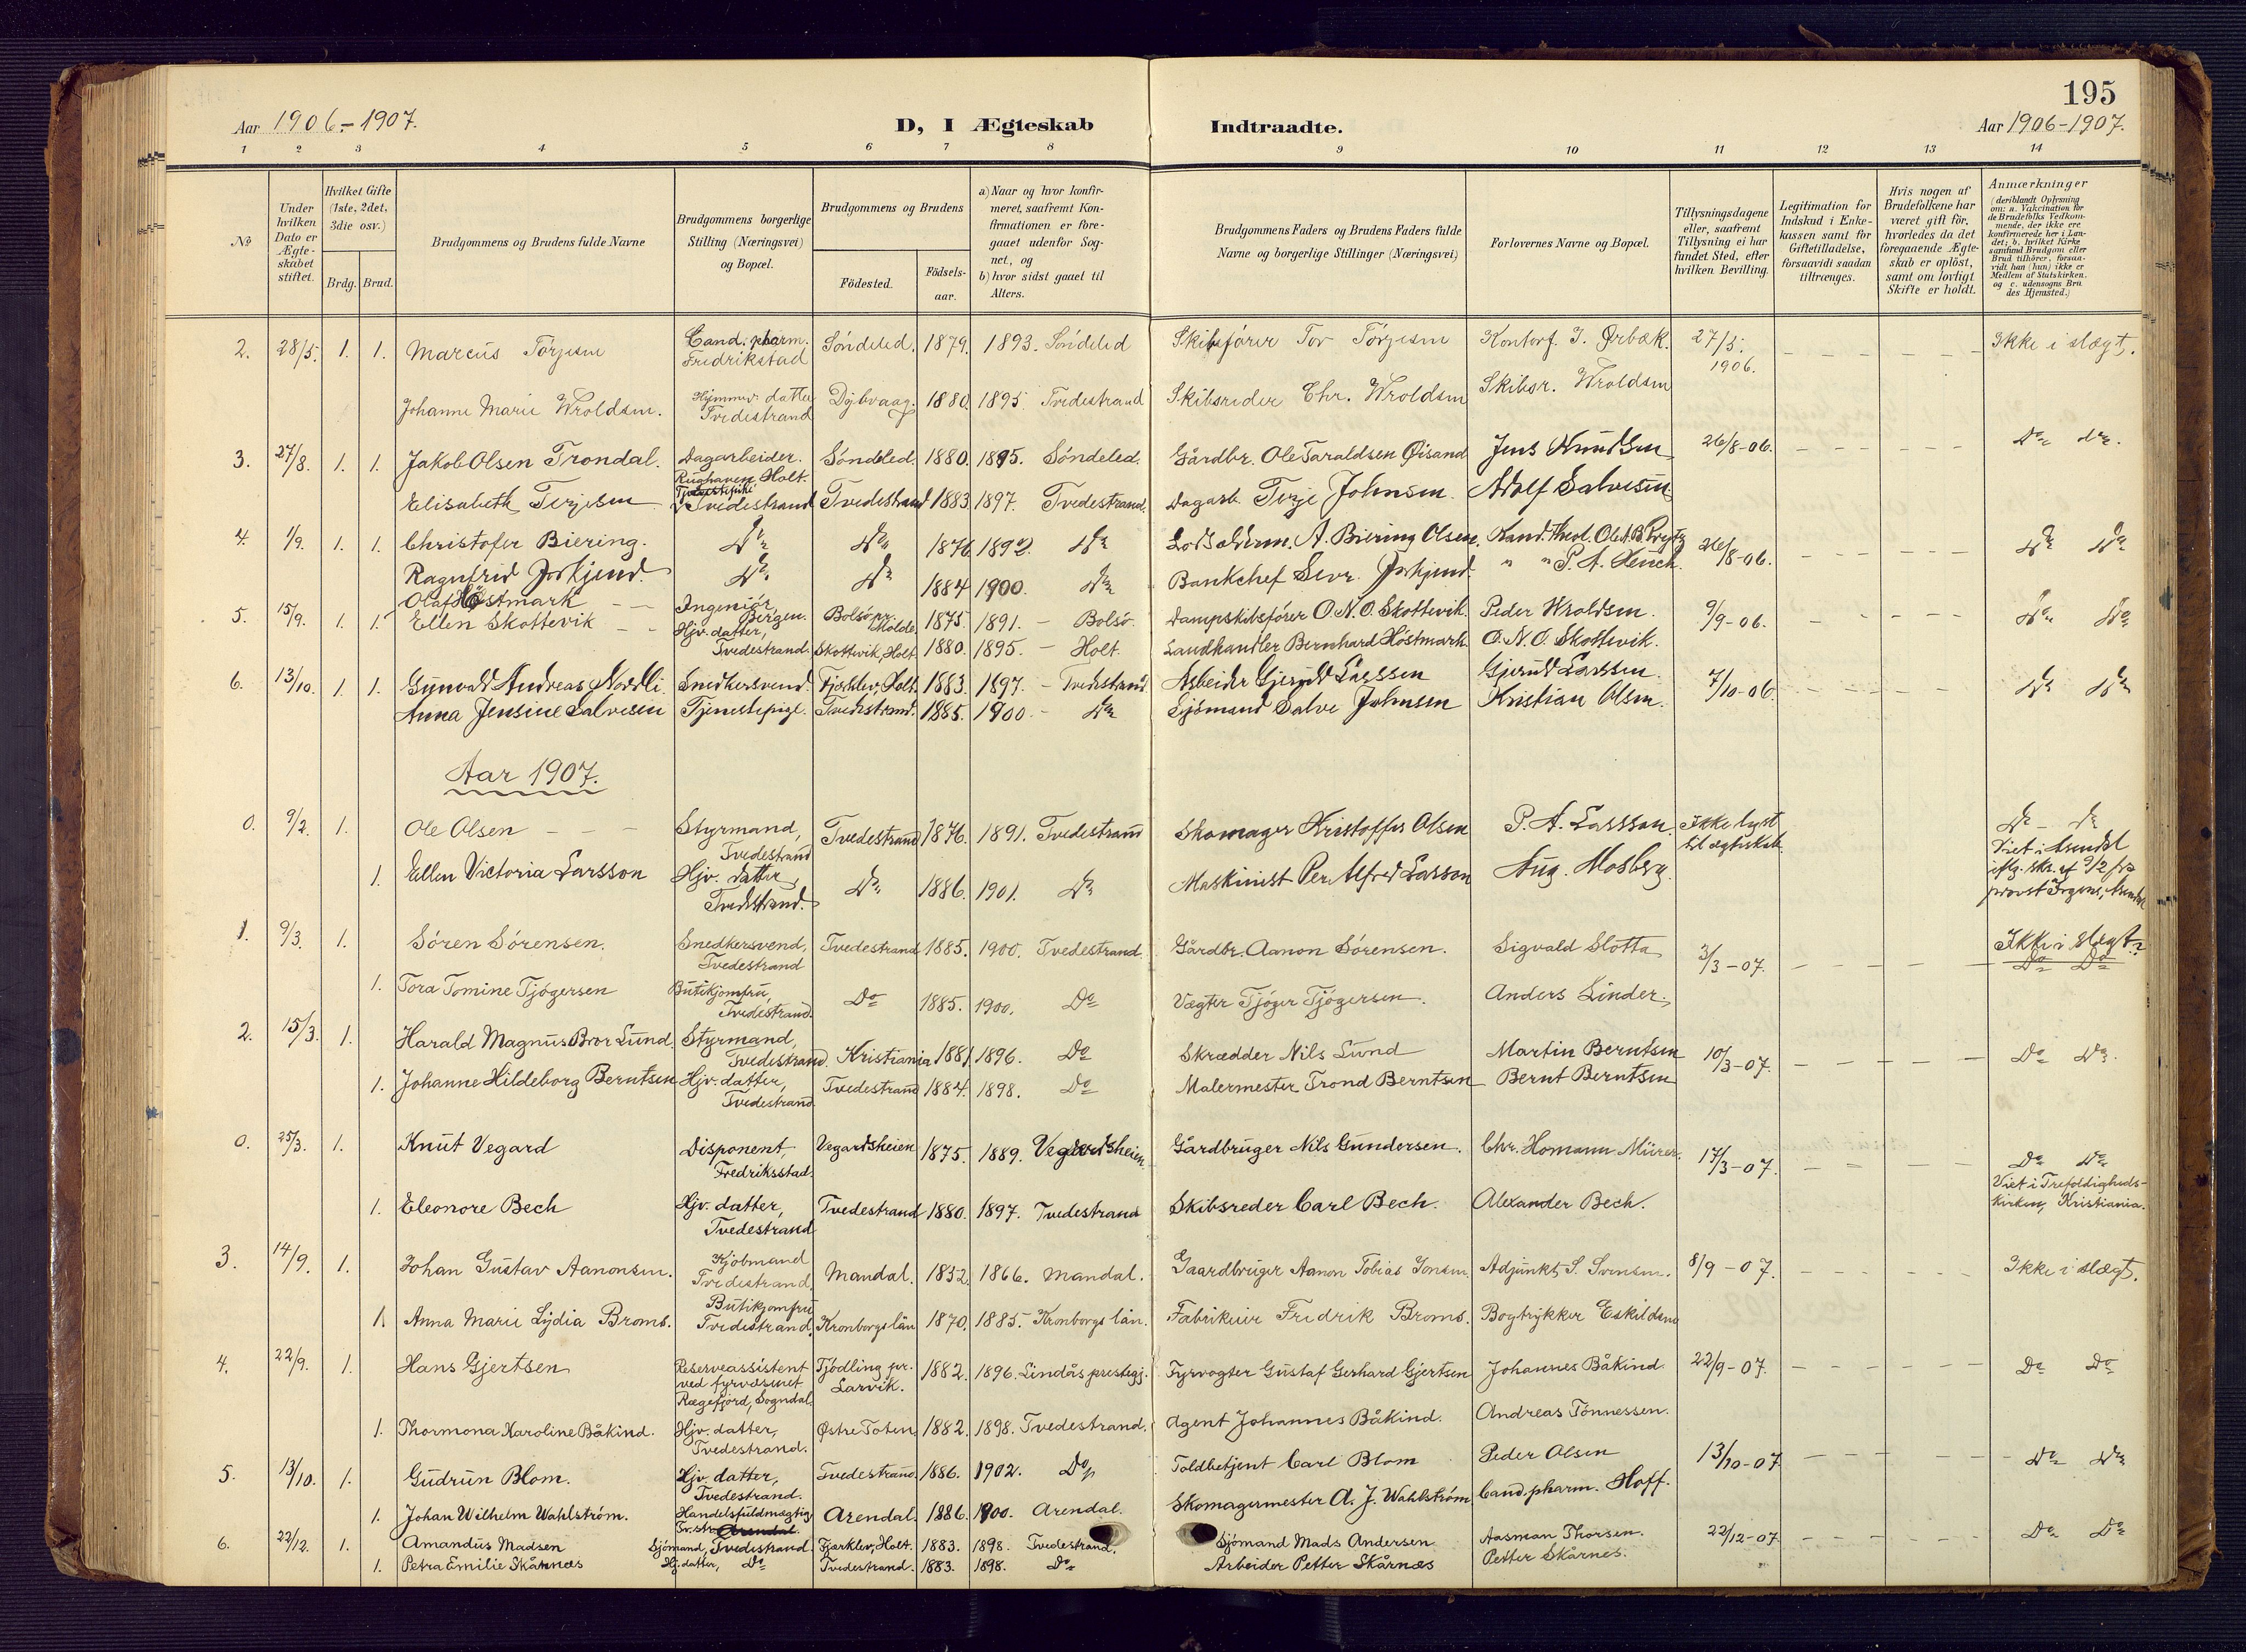 195
Aar 1906.-1907.
D, I Ægteskab Indtraadte.
Aar 1906-1907.
1 2 3 4 5 6 7 8 9 10 11 12 13 14
No
Under hvilken Dato er Ægteskabet stiftet.
Hvilket Gifte (1ste, 2det, 3die osv.)
Brdg. Brud.
Brudgommens og Brudens fulde Navne
Brudgommens borgerlige Stilling (Næringsvei) og Bopæl.
Brudgommens og Brudens
Födested.
Födselsaar.
a) Naar og hvor konfirmeret, saafremt Konfirmationen er foregaaet udenfor Sognet, og
b) hvor sidst gaaet til Alters.
Brudgommens Faders og Brudens Faders fulde Navne og borgerlige Stillinger (Næringsvei)
Forlovernes Navne og Bopæl.
Tillysningsdagene eller, saafremt Tillysning ei har fundet Sted, efter hvilken Bevilling.
Legitimation for Indskud i Enkekassen samt for Giftetilladelse, forsaavidt saadan tiltrænges.
Hvis nogen af Brudefolkene har været gift för, hvorledes da det foregaaende Ægteskab er oplöst, samt om lovligt Skifte er holdt.
Anmærkninger (deriblandt Oplysning om: a. Vakcination for de Brudefolks Vedkommende, der ikke ere konfirmerede her i Landet; b. hvilket Kirkesamfund Brudgom eller Brud tilhörer, forsaavidt han (hun) ikke er Medlem af Statskirken. og c. udensogns Brudes Hjemsted.)
2. 28/5. 1. 1. Marcus Törjesen Cand. pharm. Fredrikstad Söndeled. 1879. 1893. Söndeled Skibsförer Tov Törjesen Kontorf. J. Ørbæk. 27/5. 1906. Ikke i slægt.
Johanne Marie Wroldsen. Hjemmev. datter Tvedestrand Dybvaag. 1880. 1895 Tvedestrand Skibsreder Chr. Wroldsen Skibsr. Wroldsen
3. 27/8. 1. 1. Jakob Olsen Trondal. Dagarbeider. Rughaven, Holt. Söndeled. 1880. 1895. Söndeled. Gårdbr. Ole Taraldsen Øisand Jens Knudsen 26/8-06. Do Do
Elisabeth Terjesen Tjenestepike Tvedestrand Tvedestrand 1883. 1897. Tvedestrand. Dagarb. Terje Johnsen. Adolf Salvesen
4. 1/9. 1. 1. Christofer Biering. Do Do 1876. 1892. Do Lodsolderm. A. Biering Olsen. Kand. theol. Ole A. B. Prytz 26/8-06. Do Do
Ragnfrid Forkjend. Do Do 1884 1900. Do Bankchef Sevr. Forkjend. " " P. A. Heuch.
Olaf Höstmark Ingeniör, Bergen.
5. 15/9. 1. 1. Ellen Skottevik Hjv. datter, Tvedestrand. Bolsö pr. Molde. 1875. 1891. - Bolsö. Dampskibsförer O. N. O. Skottevik. Peder Wroldsen. 9/9-06. Do Do
Skottevik, Holt. 1880. 1895. - Holt. Landhandler Bernhard Höstmark. O. N. O. Skottevik.
6. 13/10. 1. 1. Gunvald Andreas Nordli Snedkersvend. Fjærklev, Holt. 1883. 1897. - Tvedestrand. Arbeider Gjeruld Larssen Gjeruld Larssen. 7/10-06 Do Do
Anna Jensine Salvesen Tjenestepige. Tvedestrand. 1885. 1900. - Do Sjömand Salve Johnsen Kristian Olsen.
Aar 1907.
0. 9/2. 1. Ole Olsen Styrmand, Tvedestrand Tvedestrand 1876. 1891. Tvedestrand Skomager Kristoffer Olsen P. A. Larsson. Ikke lyst til ægteskab. Do - Do
1. Ellen Victoria Larsson Hjv. datter, Tvedestrand. Do 1886. 1901. Do Maskinist Per Alfred Larsson Aug. Mosberg. Viet i Arendal iflg. skr. af 9/2 fra provst Irgens, Arendal
1. 9/3. 1. Sören Sörensen. Snedkersvend, Tvedestrand Tvedestrand 1885. 1900. Tvedestrand. Gårdbr. Aanon Sörensen. Sigvald Slotta 3/3-07. Ikke i slægt. Do Do
1. Tora Tomine Tjögersen Butikjomfru, Tvedestrand. Do 1885. 1900. Do Vægter Tjöger Tjögersen. Anders Linder.
2. 15/3. 1. Harald Magnus Bror Lund. Styrmand, Tvedestrand. Kristiania 1881. 1896. Do Skrædder Nils Lund Martin Berntsen 10/3-07. Do Do.
1. Johanne Hildeborg Berntsen Hjv. datter, Tvedestrand. Tvedestrand 1884. 1898. Do Malermester Trond Berntsen Bernt Berntsen
0. 25/3. 1. Knut Vegard Disponent Fredriksstad. Vegardsheien 1875. 1889. Vegardsheien Gårdbruger Nils Gundersen. Chr. Homann Mürer. 17/3-07. Do Do
1. Eleonore Bech Hjv. datter, Tvedestrand Tvedestrand 1880. 1897. Tvedestrand Skibsreder Carl Bech. Alexander Bech. Viet i Trefoldighedskirken, Kristiania.
3. 14/9. 1. Johan Gustav Aanonsen. Kjöbmand Tvedestrand Mandal. 1852. 1866. Mandal. Gaardbruger Aanon Tobias Jonsen. Adjunkt S. Svensen. 8/9-07. Ikke i slægt.
1. Anna Marie Lydia Broms. Butikjomfru Tvedestrand. Kronborgs län 1870. 1885. Kronborgs län. Fabrikeier Fredrik Broms. Bogtrykker Eskildsen
4. 22/9. 1. Hans Gjertsen Reserveassistent ved fyrvæsenet Rægefjord, Sogndal. Tjödling pr. Larvik. 1882. 1896. Lindås prestegj. Fyrvogter Gustaf Gerhard Gjertsen Johannes Båkind 22/9-07. Do Do
1. Thormona Karoline Båkind. Hjv. datter, Tvedestrand. Østre Toten. 1882. 1898. Tvedestrand. Agent Johannes Båkind. Andreas Tönnessen.
5. 13/10. 1. Gudrun Blom. Hjv. datter, Tvedestrand. Tvedestrand. 1886. 1902. Do Toldbetjent Carl Blom Peder Olsen 13/10-07 Do Do
1. Johan Wilhelm Wahlström. Handelsfuldmægtig Tv.str. Arendal. Arendal. 1886. 1900. Arendal. Skomagermester A. J. Wahlström Cand. pharm. Hoff.
6. 22/12. 1. Amandus Madsen Sjömand, Tvedestrand Fjærklev, Holt. 1883. 1898. Tvedestrand. Sjömand Mads Andersen Aasman Thorsen. 22/12-07 Do Do
1. Petra Emilie Skårnæs Hj. datter, Do Tvedestrand. 1883. 1898. Do Arbeider Petter Skårnæs Petter Skårnes.